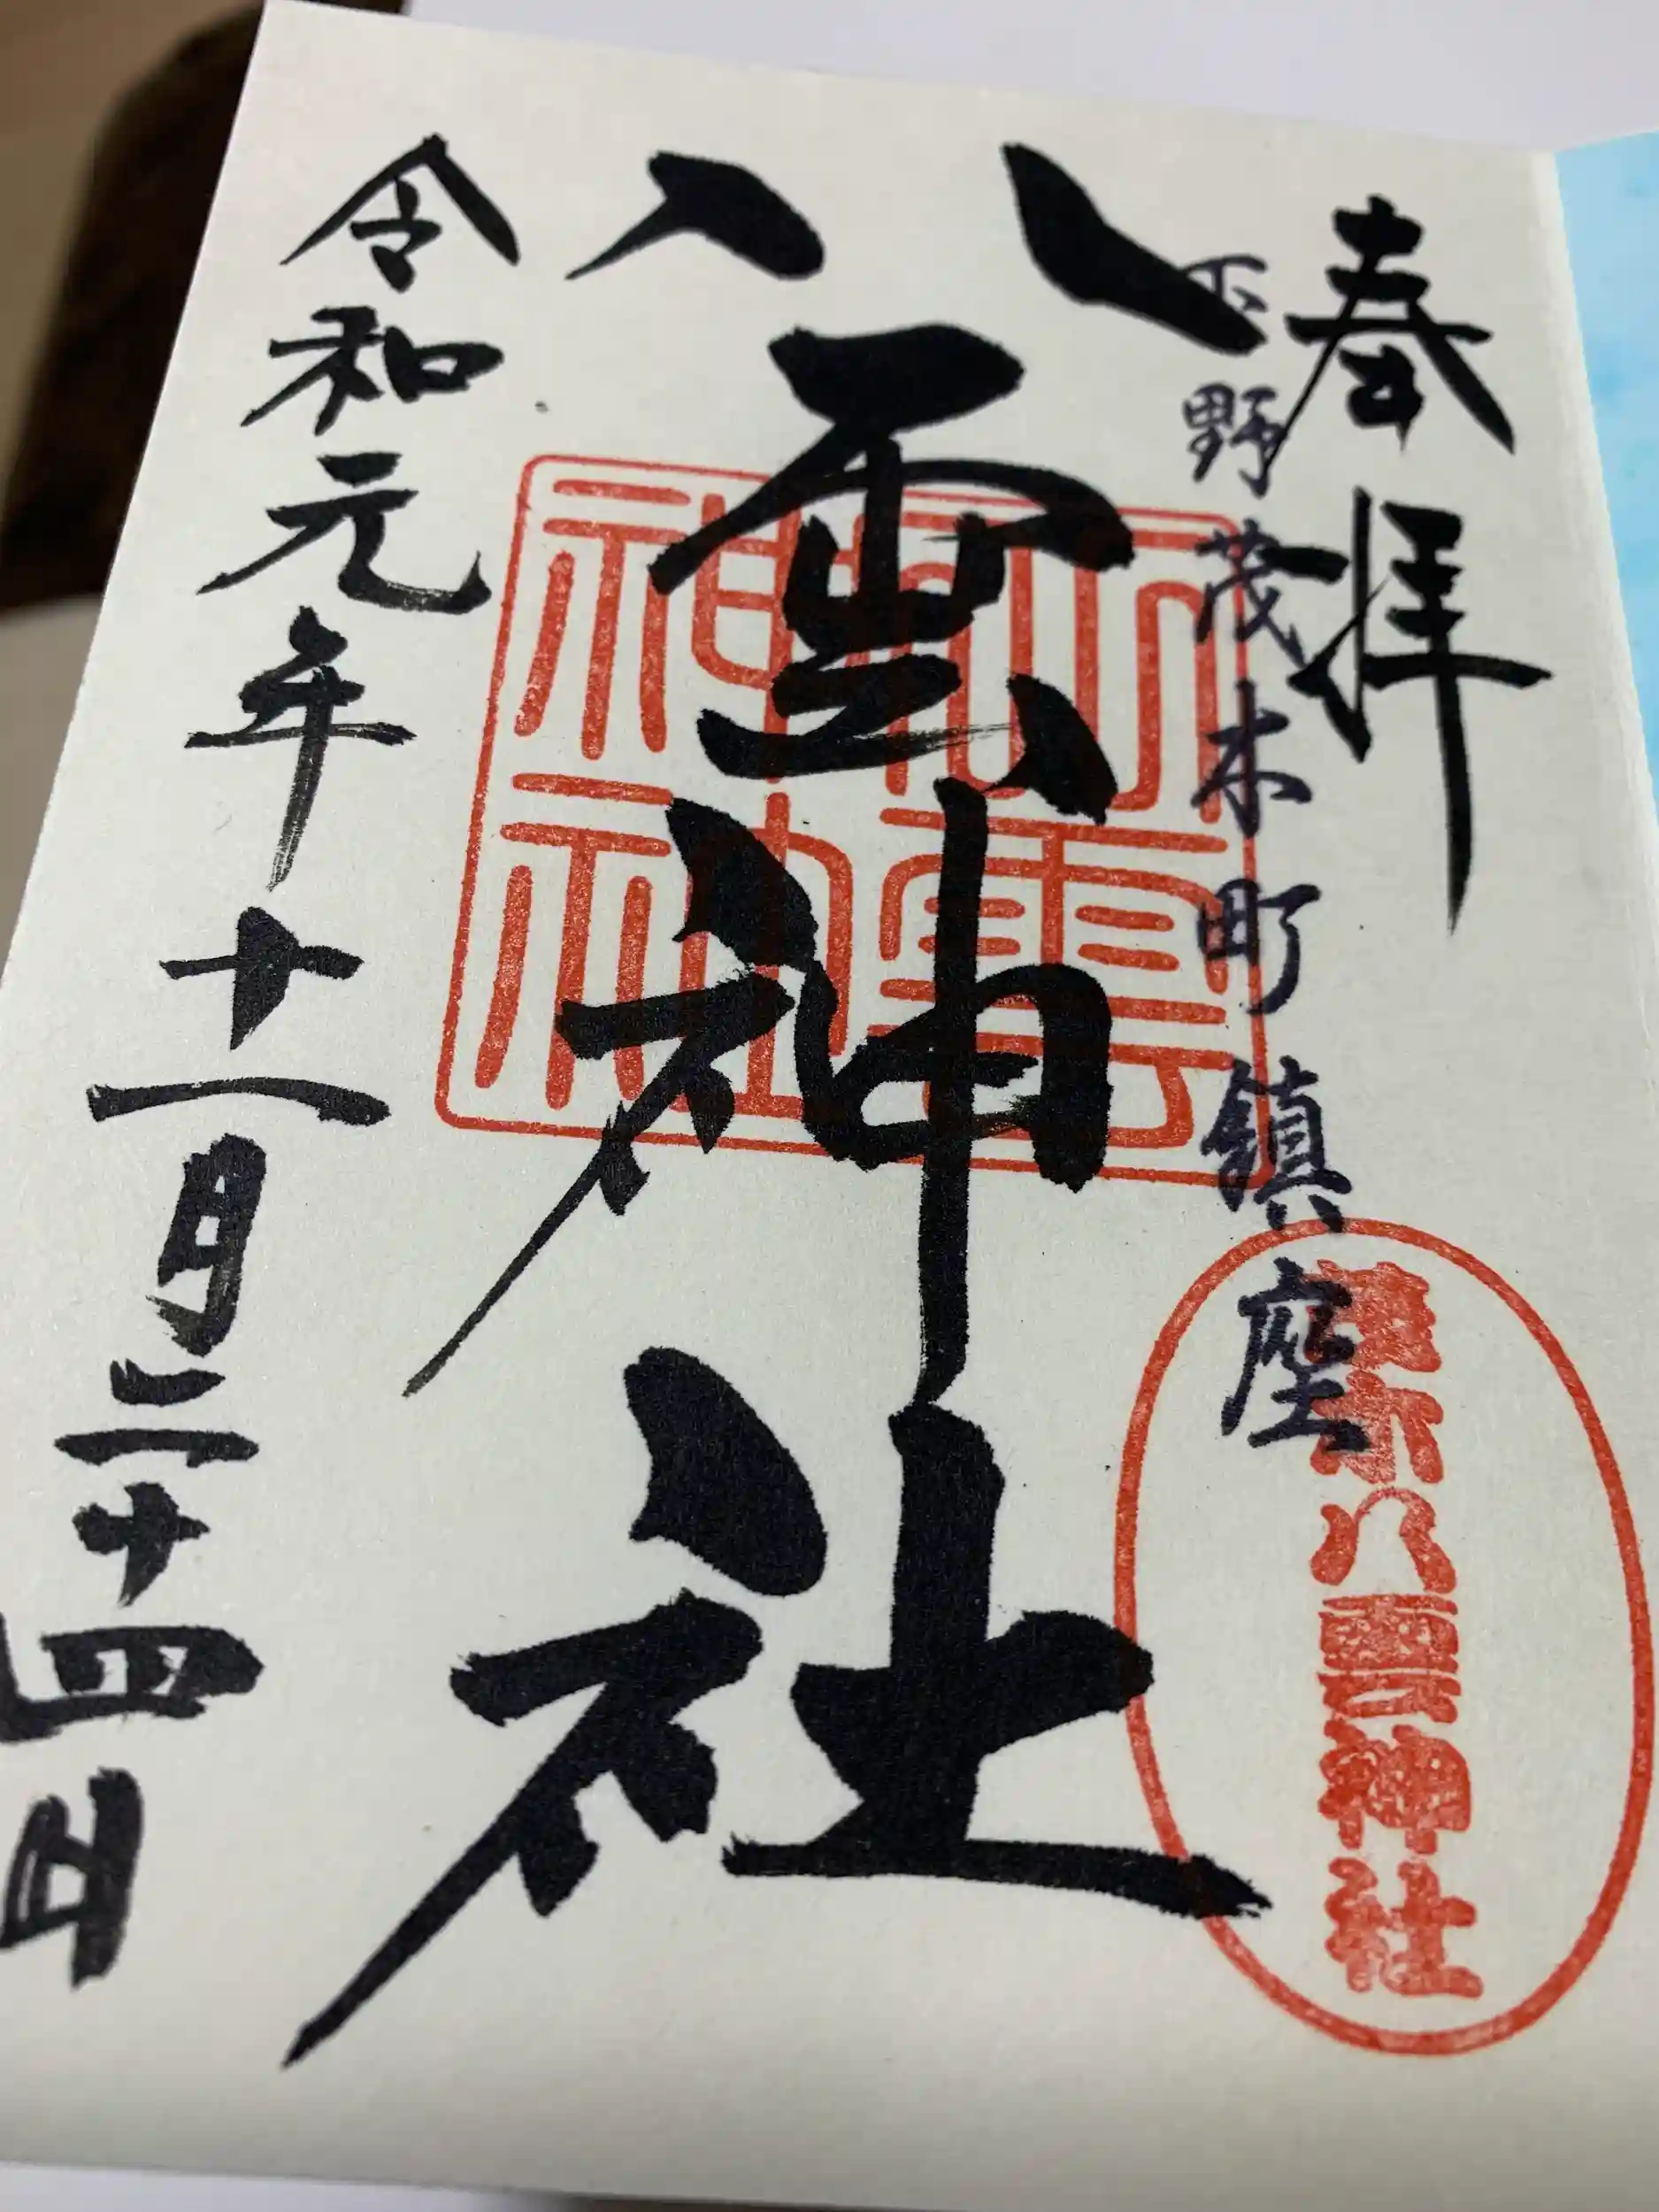 奉拝
下野茂木町鎮座
茂木八雲神社
八雲神社
八雲神社
令和元年十一月二十四日